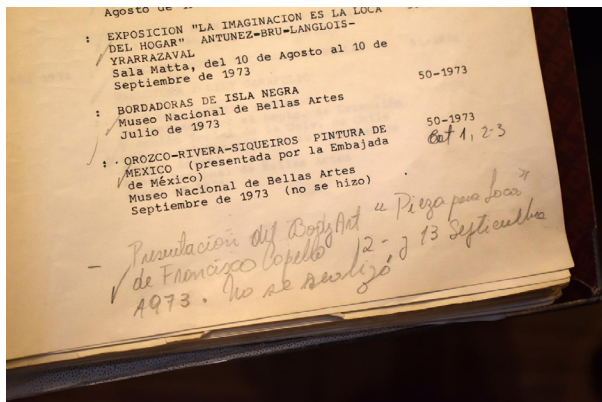 Agosto de 1
: EXPOSICION "LA IMAGINACION ES LA LOCA
DEL HOGAR" ANTUNEZ-BRU-LANGLOIS-
YRARRAZAVAL
Sala Matta, del 10 de Agosto al 10 de
Septiembre de 1973
: BORDADORAS DE ISLA NEGRA 50-1973
Museo Nacional de Bellas Artes
Julio de 1973
: OROZCO-RIVERA-SIQUEIROS PINTURA DE 50-1973
MEXICO (presentada por la Embajada Cat 1, 2-3
de México)
Museo Nacional de Bellas Artes
Septiembre de 1973 (no se hizo)
- Presentación del BodyArt "Pieza para Loca"
de Francisco Copello 12 - y 13 Septiembre
1973. No se realizó